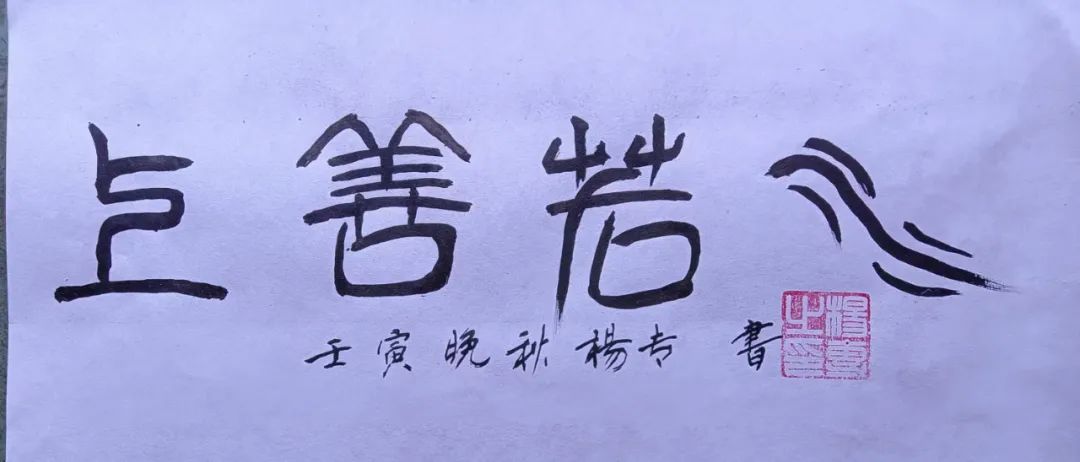 上善若水
壬寅晚秋楊专書